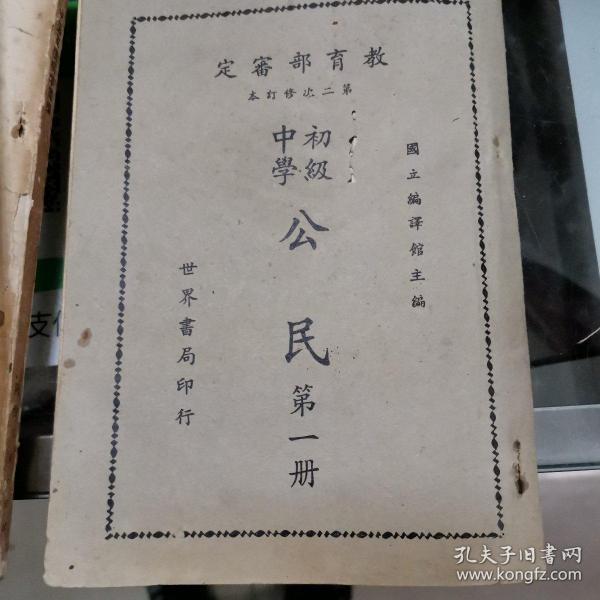 教育部審定
第二次修訂本
國立編譯館主編
初級
中學
公民第一册
世界書局印行
支付
孔夫子旧书网
www.kongfz.com